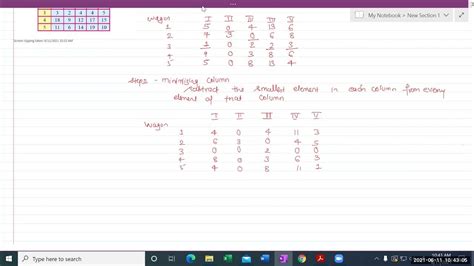 My Notebook > New Section 1
3 3 2 4 5
4 18 11 9 12 15
5 11 6 14 19 10
wagon I II III IV V
1 5 0 4 13 6
2 7 3 0 6 8
3 1 0 8 2 3
4 9 0 3 8 6
5 5 0 8 13 4
step - minimizing column
subtract the smallest element in each column from every
element of that column
I II III IV V
wagon
1 4 0 4 11 3
2 6 3 0 4 5
3 0 0 2 0 0
4 8 0 3 6 3
5 4 0 8 11 1
Type here to search
10:43 AM
2021-06-11 10:43:05